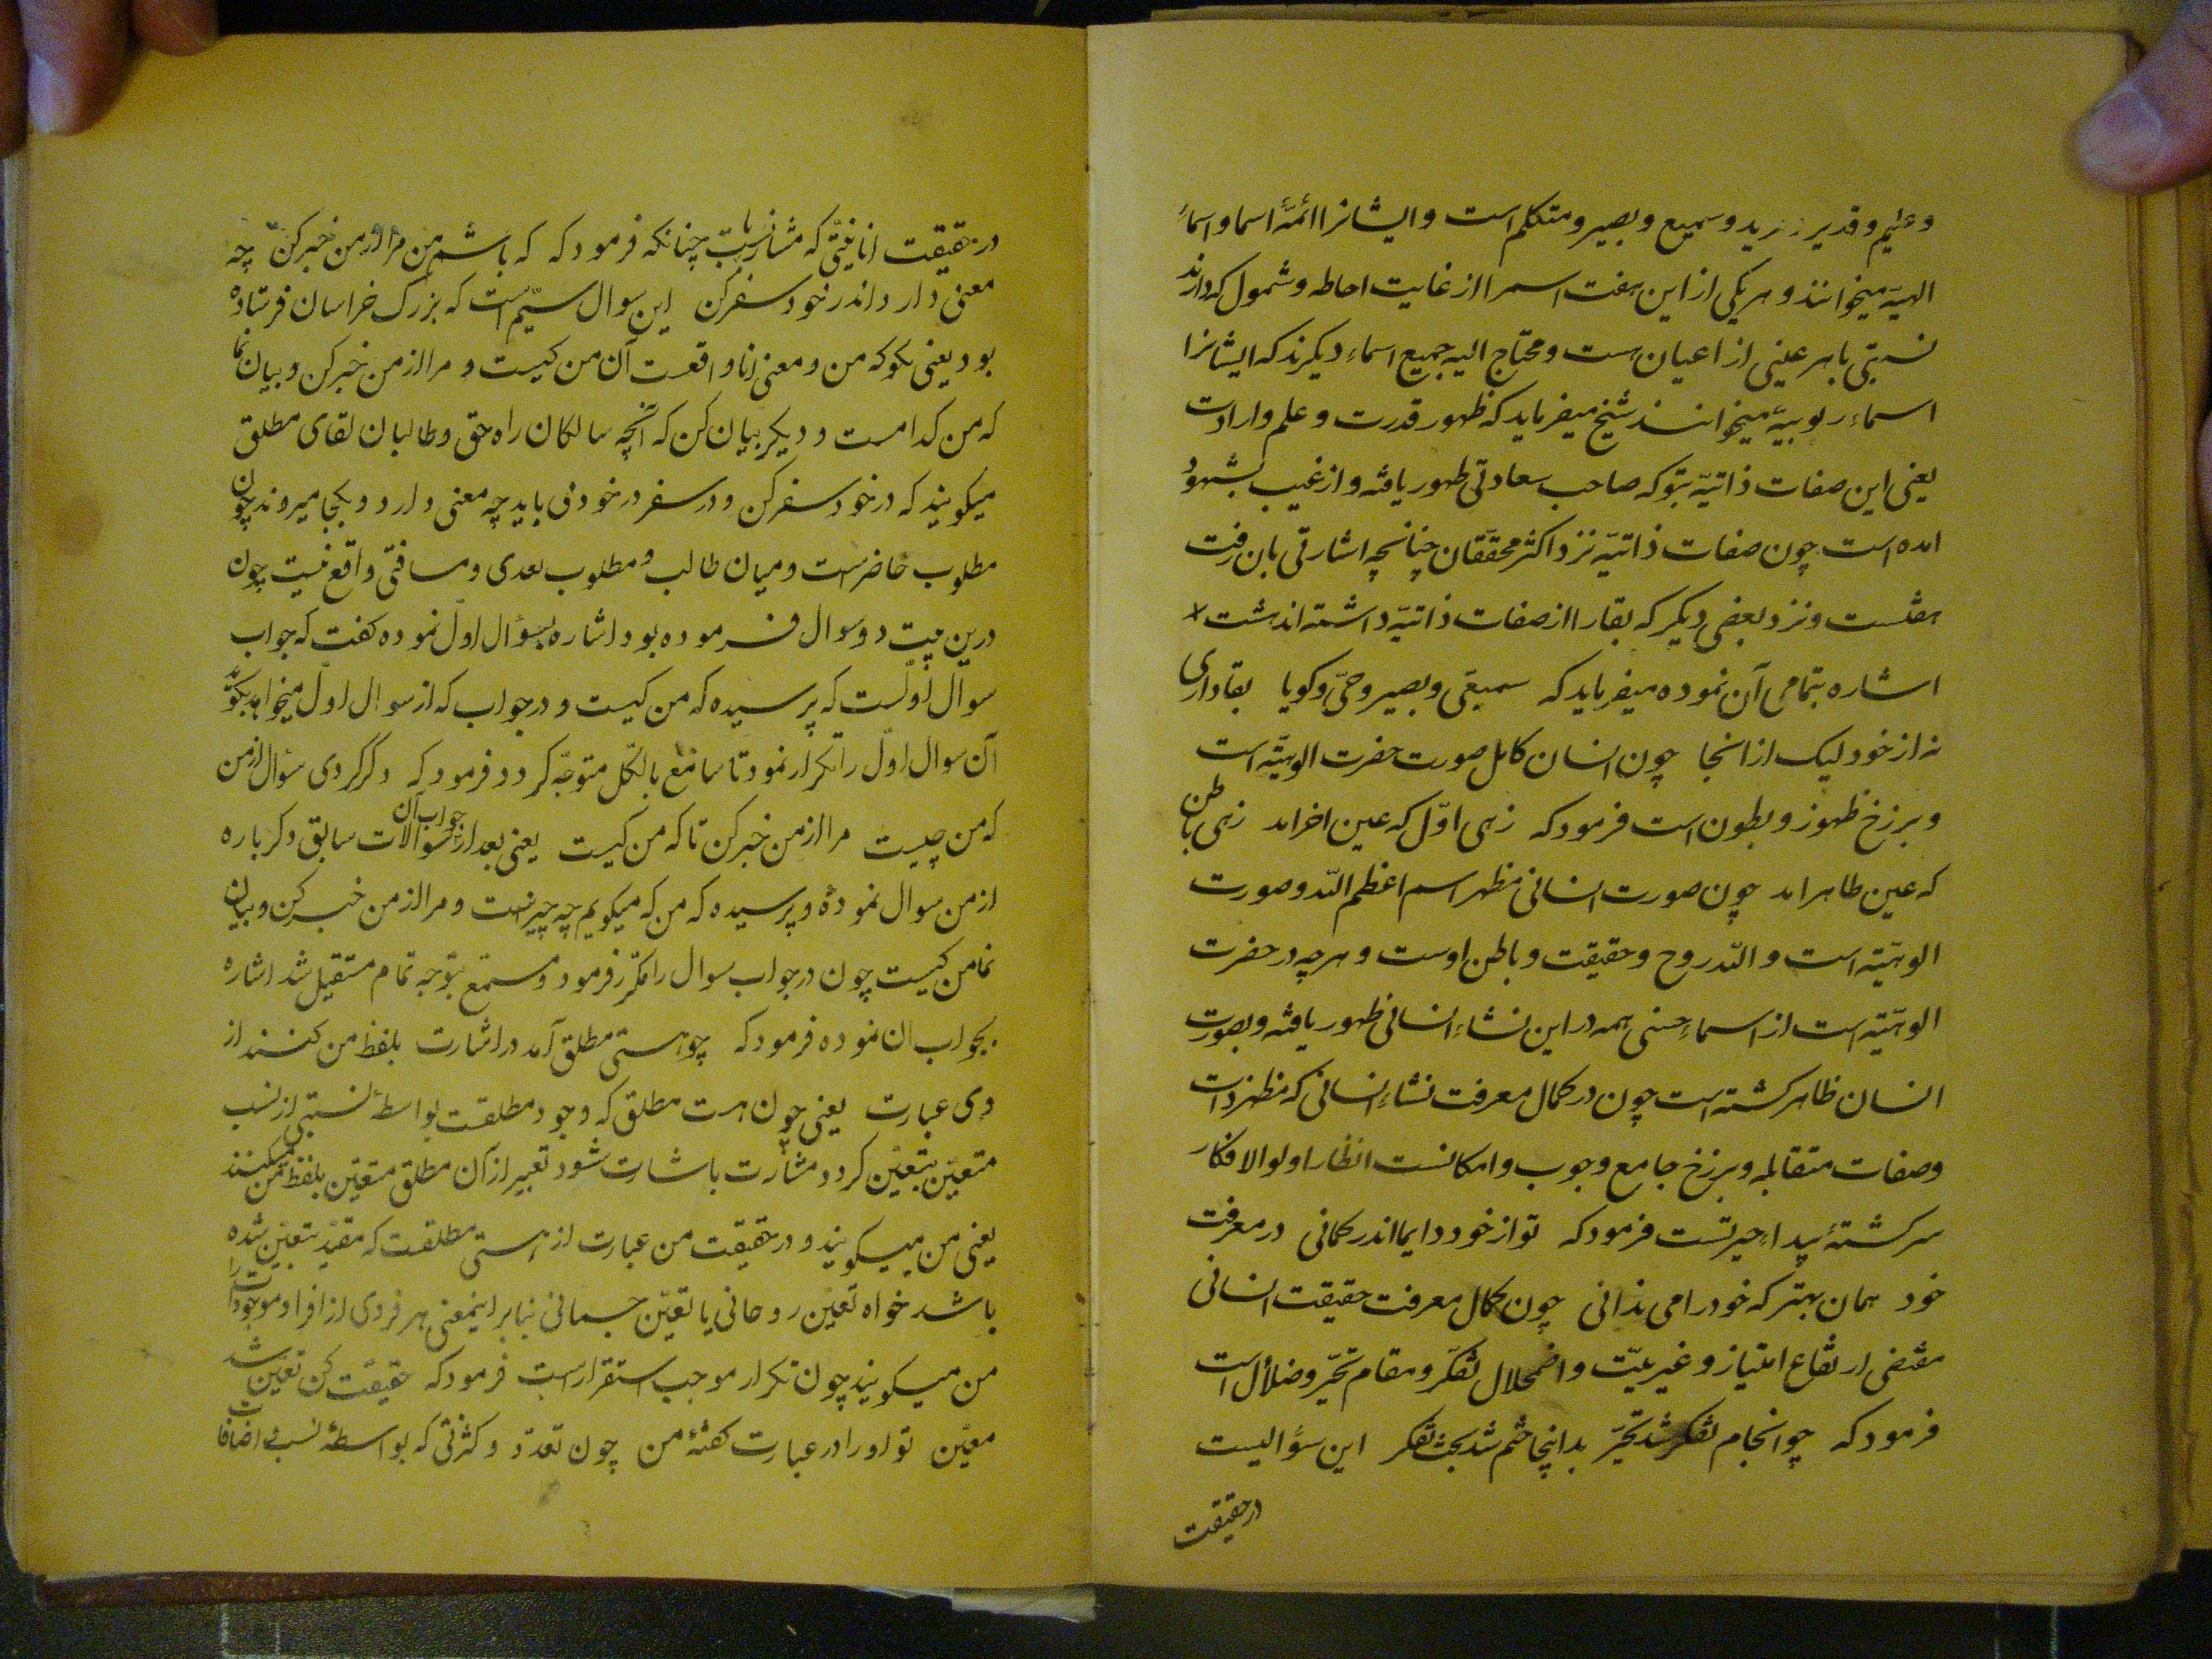 وعلیم و قدیر و مرید و سمیع و بصیر و متکلم است و ایشانرا ائمّۀ اسما و اسماءِ
الهیّه میخوانند و هریکی از این هفت اسم را از غایت احاطه و شمول که دارند
نسبتی با هر عینی از اعیان هست و محتاج الیه جمیع اسماءِ دیگرند که ایشانرا
اسماءِ ربوبیّه میخوانند شیخ میفرماید که ظهور قدرت و علم و ارادت
یعنی این صفات ذاتیّه بتو که صاحب سعادتی ظهور یافته و از غیب بشهود
امده است چون صفات ذاتیّه نزد اکثر محقّقان چنانچه اشارتی بان رفت
هفتست و نزد بعضی دیگر که بقا را از صفات ذاتیّه داشته اند هشت
اشاره بتمامی آن نموده میفرماید که سمیعی و بصیر و حیّ و گویا بقا داری
نه از خود لیک از انجا چون انسان کامل صورت حضرت الوهیّه است
و برزخ ظهور و بطون است فرمود که زهی اوّل که عین اخر امد زهی باطن
که عین ظاهر امد چون صورت انسانی مظهر اسم اعظم اللّه و صورت
الوهیّته است و اللّه روح و حقیقت و باطن اوست و هرچه در حضرت
الوهیّته است از اسماءِ حسنی همه در این نشاءِ انسانی ظهور یافته و بصورت
انسان ظاهر گشته است چون در کمال معرفت نشاءِ انسانی که مظهر ذات
وصفات متقابله و برزخ جامع وجوب و امکانست انظار اولوالافکار
سرگشتۀ بیداءِ حیرتست فرمود که تو از خود دایما اندر گمانی در معرفت
خود همان بهتر که خود را می ندانی چون کمال معرفت حقیقت انسانی
مقتضی ارتفاع امتیاز و غیریّت و اضمحلال تفکّر و مقام تحیّر و ضلال است
فرمود که چو انجام تفکّر شد تحیّر بدانجا ختم شد بحث تفکر این سؤالیست
درحقیقت
درحقیقت انانیّتی که چنانکه فرمود که که باشم من مرا از من خبر کن چه
معنی دارد اندر خود سفر کن این سوال سیّم است که بزرگ خراسان فرستاده
بود یعنی بگو که من و معنی انا و اقعست آن من کیست و مرا از من خبر کن و بیان نما
که من کدامست و دیگر بیان کن که آنچه سالکان راه حق و طالبان لقای مطلق
میگویند که در خود سفر کن و در سفر در خود می باید چه معنی دارد و بکجا میروند چون
مطلوب حاضر است و میان طالب و مطلوب بعدی و مسافتی واقع نیست چون
درین بیت دو سوال فرموده بود اشاره بسؤال اول نموده گفت که جواب
سوال اوّلست که پرسیده که من کیست و در جواب که از سوال اول میخواهد بگوید
آن سوال اوّل را تکرار نمود تا سامع بالکل متوجّه گردد و فرمود که دگر کردی سؤال از من
که من چیست مرا از من خبر کن تا که من کیست یعنی بعد از جواب آن سوالات سابق دگر باره
از من سوال نمودۀ و پرسیده که من که میگویم چه چیز است و مرا از من خبر کن و بیان
نما من کیست چون در جواب سوال را مکرّر فرمود و مستمع بتوجه تمام مستقبل شد اشاره
بجواب ان نموده فرمود که چو هستی مطلق آمد در اشارت بلفظ من کنند از
وی عبارت یعنی چون هست مطلق که وجود مطلقست بواسطۀ نسبتی از نسب
متعیّن بتعیّن گردد و مشارت باشارت شود تعبیر از آن مطلق متعیّن بلفظ من میکنند
یعنی من میگویند و درحقیقت من عبارت از هستی مطلقست که مقیّد بتعیّن شده
باشد خواه تعیّن روحانی یا تعیّن جسمانی بنابر اینمعنی هر فردی از افراد موجودات را
من میگویند چون تکرار موجب استقرار است فرمود که حقیقت کز تعیّن شد
معیّن تو او را در عبارت گفتۀ من چون تعدّد و کثرتی که بواسطۀ نسب و اضافات